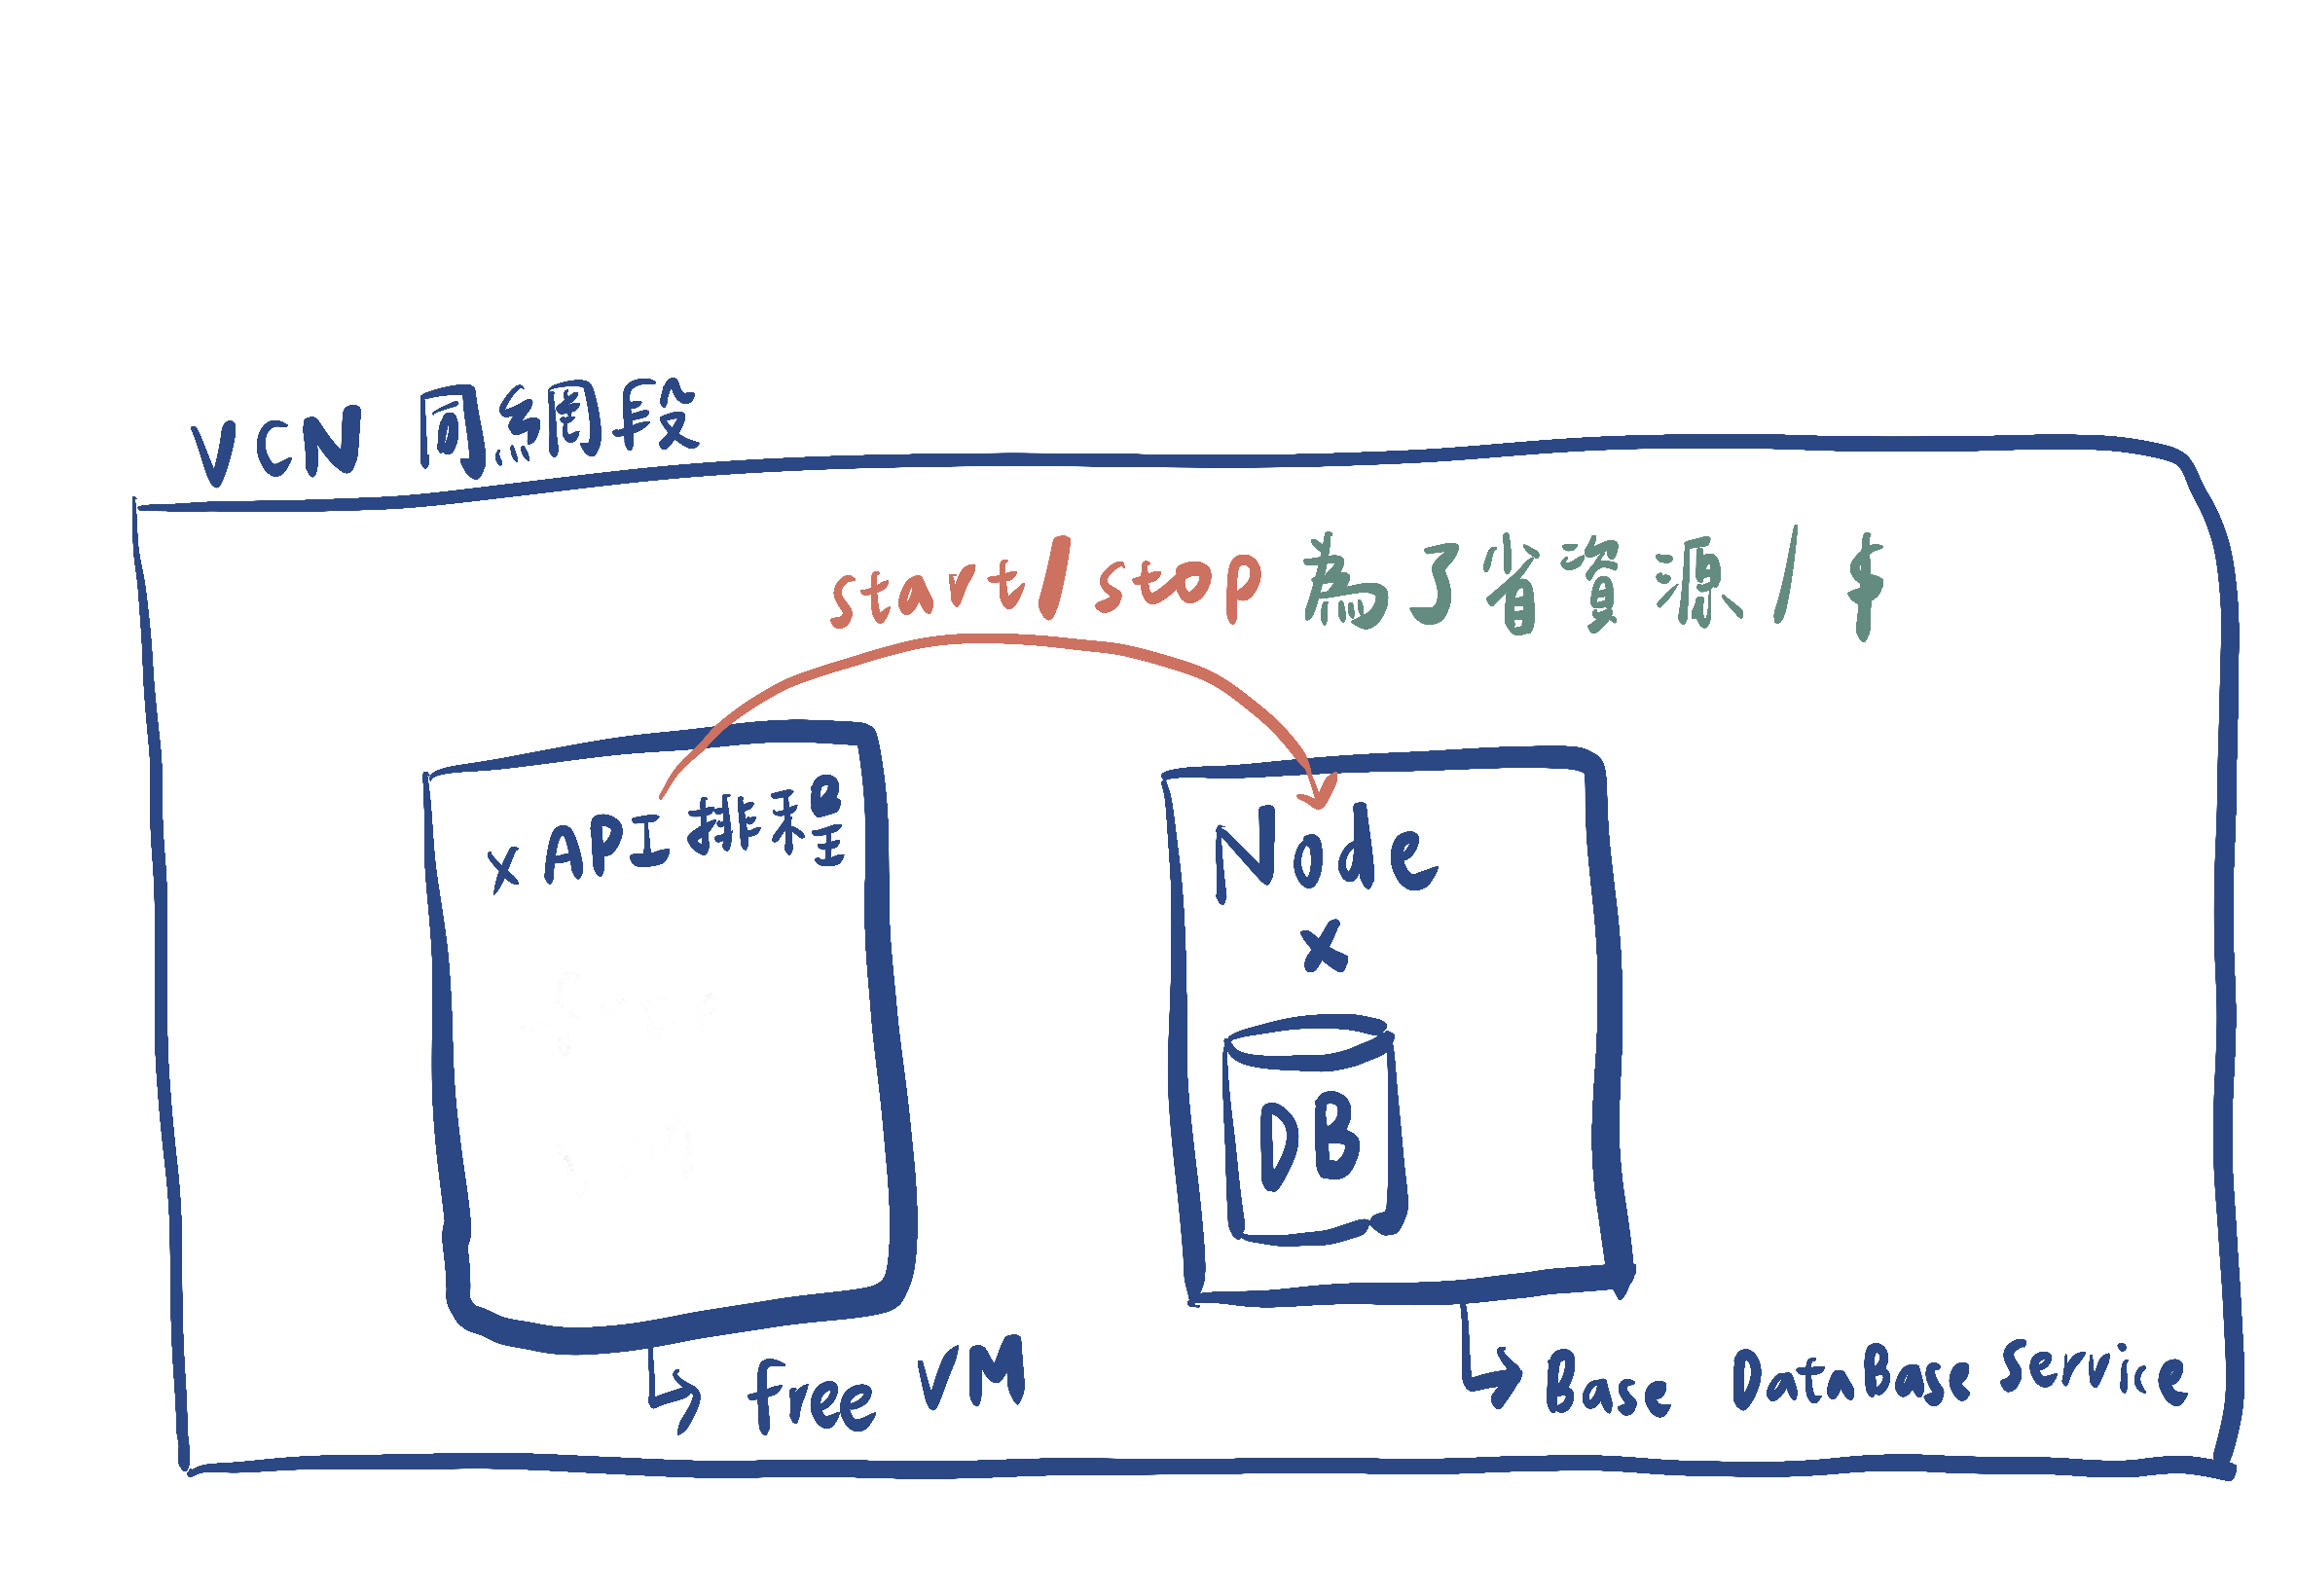 VCN 同網段
start/stop 為了省資源/$
x API 排程
Node
x
DB
free VM
Base DataBase Service